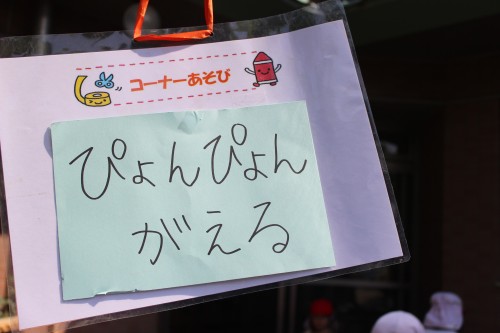 コーナーあそび
ぴょんぴょん
がえる